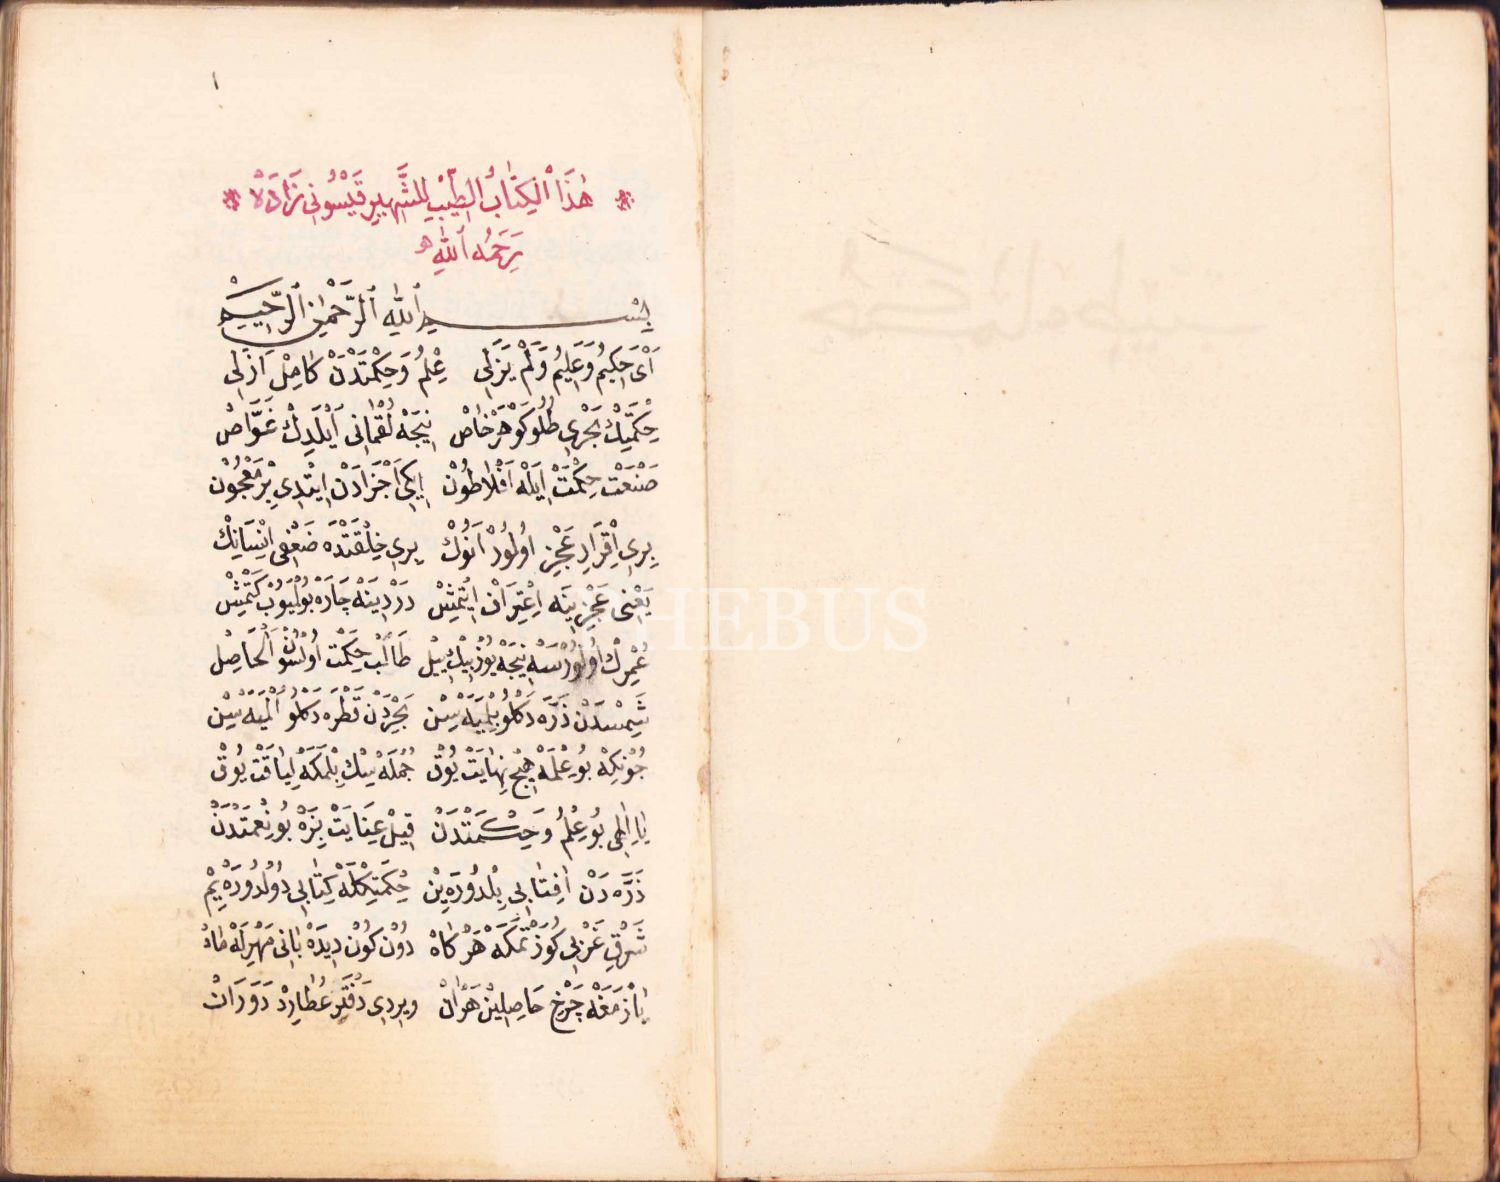 ١
هٰذَا الْكِتَابُ الطِّبِّ لِلشَّهِيرِ قَيْسُونِى زَادَهْ
رَحِمَهُ اللّٰه
بِسْمِ اللّٰهِ الرَّحْمٰنِ الرَّحِيمِ
اَىْ حَكِيمُ وَعَلِيمُ وَلَمْ يَزَلِى عِلْمُ وَحِكْمَتْدَنْ كَامِلْ اَزَلِى
حِكْمَتِكْ بَحْرِى طُلُو كَوْهَرْ خَاصْ نِيجَهْ لُقْمَانِى اَيْلَدِكْ غَوَّاصْ
صَنْعَتْ حِكْمَتْ اِيلَهْ اَفْلَاطُونْ اِيكِى اَجْزَادَنْ اِيتْدِى بِرْ مَعْجُونْ
بِرِى اِقْرَارِ عَجْزِ اُولُورْ اَنُوكْ بِرِى خِلْقَتْدَه ضَعْفِى اِنْسَانِكْ
يَعْنِى عَجْزِينَه اِعْتِرَافْ اِيتْمِشْ دَرْدِينَهْ چَارَهْ بُولْيُوبْ كَتْمِشْ
عُمْرِكْ اُولُورْسَه نِيجَهْ يُوزْ بِيكْ يِيلْ طَالِبْ حِكْمَتْ اُولْسُونْ اَلْحَاصِلْ
شَمْسْدَنْ ذَرَّه دَكْلُو بِلْيَهْ سِنْ بَحْرْدَنْ قَطْرَه دَكْلُو اَلْمَيَهْ سِنْ
چُونْكِهْ بُو عِلْمَهْ هِيچْ نِهَايَتْ يُوقْ جُمْلَهْ سِنْكْ بِلْمَكَهْ لِيَاقَتْ يُوقْ
يَا اِلٰهِى بُو عِلْمُ وَحِكْمَتْدَنْ قِيلْ عِنَايَتْ بِزَهْ بُو نِعْمَتْدَنْ
ذَرَّه دَنْ اٰفِتَابِى بِلْدُورَه يِنْ حِكْمَتِكْلَهْ كِتَابِى دُولْدُورَه يِمْ
شَرْقِ غَرْبِى كُوزَتْمَكَهْ هَرْ كَاهْ دُونْ كُونْ دِيدَهْ بَانِى مِهْرِلَهْ مَاهْ
يَازْمَغَهْ چَرْخِ حَاصِلِينْ هَرْ اٰنْ وِيرْدِى دَفْتَرْ عُطَارِدْ دَوَرَانْ
PHEBUS